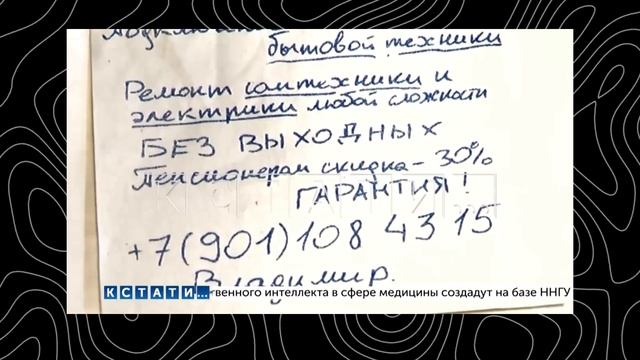 бытовой техники
Ремонт сантехники и
электрики любой сложности
БЕЗ ВЫХОДНЫХ
Пенсионерам скидка - 30%
ГАРАНТИЯ!
+7(901)108 43 15
Владимир.
КСТАТИ... венного интеллекта в сфере медицины создадут на базе ННГУ